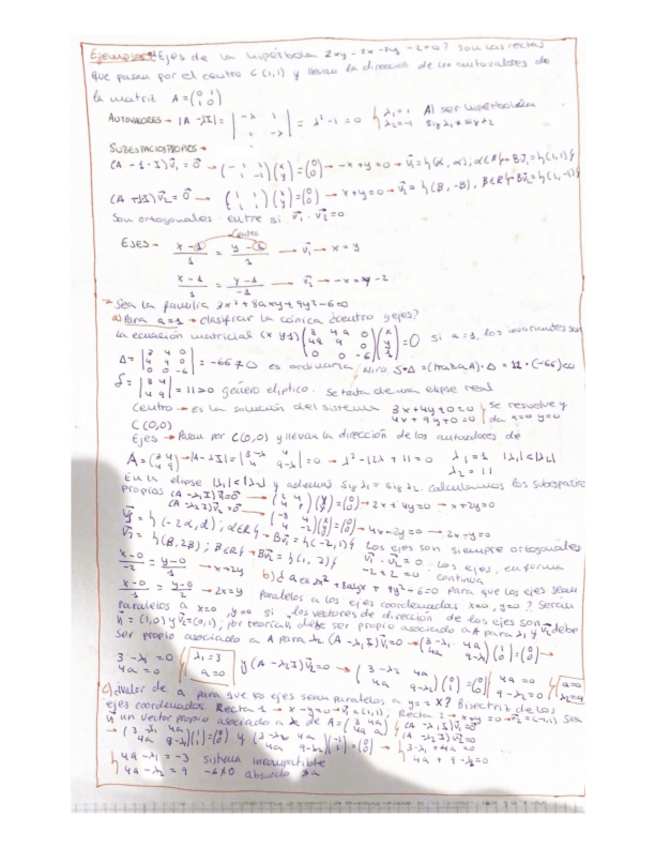 Ejemplos: Ejes de la hipérbola 2xy - 2x - 2y - 2 = 0? Son las rectas
que pasan por el centro C(1,1) y llevan la dirección de los autovalores de
la matriz A = (0 1 1 0)
AUTOVALORES → |A - λI| = |-λ 1 1 -λ| = λ² - 1 = 0 { λ₁ = 1 λ₂ = -1 Al ser hipérbola sig λ₁ ≠ sig λ₂
SUBESPACIOS PROPIOS →
(A - 1·I)v⃗₁ = 0⃗ → (-1 1 1 -1)(x y) = (0 0) → -x + y = 0 → v⃗₁ = {(α, α); α∈R} → Bv⃗₁ = {(1,1)}
(A + I)v⃗₂ = 0⃗ → (1 1 1 1)(x y) = (0 0) → x + y = 0 → v⃗₂ = {(B, -B), B∈R} → Bv⃗₂ = {(1, -1)}
Son ortogonales entre si v⃗₁ · v⃗₂ = 0
Centro
EJES → x - 1 / 1 = y - 1 / 1 → v⃗₁ → x = y
x - 1 / 1 = y - 1 / -1 → v⃗₂ → -x = y - 2
Sea la familia 3x² + 8axy + 9y² - 6 = 0
a) Para a = 1 → clasificar la cónica ¿centro y ejes?
la ecuación matricial (x y 1)(3 4a 0 4a 9 0 0 0 -6)(x y 1) = 0 si a = 1, los invariantes son
Δ = |3 4 0 4 9 0 0 0 -6| = -66 ≠ 0 es ordinaria. Miro S·Δ = (traza A)·Δ = 12·(-66) < 0
δ = |3 4 4 9| = 11 > 0 género elíptico. Se trata de una elipse real
Centro → es la solución del sistema 3x + 4y + 0 = 0 4x + 9y + 0 = 0 } se resuelve y da x = 0 y = 0
C(0,0)
Ejes → Pasan por C(0,0) y llevan la dirección de los autovalores de
A = (3 4 4 9) → |A - λI| = |3-λ 4 4 9-λ| = 0 → λ² - 12λ + 11 = 0 λ₁ = 1 λ₂ = 11 |λ₁| < |λ₂|
En la elipse |λ₁| < |λ₂| y además sig λ₁ = sig λ₂. Calculamos los subespacios
propios (A - λ₁I)v⃗₁ = 0⃗ → (2 4 4 8)(x y) = (0 0) → 2x + 4y = 0 → x + 2y = 0
(A - λ₂I)v⃗₂ = 0⃗ → (-8 4 4 -2)(x y) = (0 0) → 4x - 2y = 0 → 2x - y = 0
v⃗₁ = {(-2α, α); α∈R} → Bv⃗₁ = {(-2,1)} Los ejes son siempre ortogonales
v⃗₂ = {(B, 2B); B∈R} → Bv⃗₂ = {(1, 2)} v⃗₁ · v⃗₂ = 0 -2 + 2 = 0. Los ejes, en forma continua
x-0 / -2 = y-0 / 1 → x = -2y b) ¿a en 3x² + 8axy + 9y² - 6 = 0 para que los ejes sean
x-0 / 1 = y-0 / 2 → 2x = y paralelos a los ejes coordenados x = 0, y = 0? Serán
paralelos a x = 0, y = 0 si los vectores de dirección de los ejes son
v⃗₁ = (1,0) y v⃗₂ = (0,1); por teoría v⃗₁ debe ser propio asociado a A para λ₁ y v⃗₂ debe
ser propio asociado a A para λ₂ (A - λ₁I)v⃗₁ = 0 → (3-λ₁ 4a 4a 9-λ₁)(1 0) = (0 0) →
3 - λ₁ = 0 4a = 0 { λ₁ = 3 a = 0 y (A - λ₂I)v⃗₂ = 0 → (3-λ₂ 4a 4a 9-λ₂)(0 1) = (0 0) { 4a = 0 9 - λ₂ = 0 { a = 0 λ₂ = 9
c) ¿Valor de a para que los ejes sean paralelos a y = ± x? Bisectriz de los
ejes coordenados. Recta 1 → x - y = 0 → v⃗₁ = (1,1); Recta 2 → x + y = 0 → v⃗₂ = (-1,1) Sea
v⃗ un vector propio asociado a λ de A = (3 4a 4a 9) { (A - λ₁I)v⃗₁ = 0 (A - λ₂I)v⃗₂ = 0
→ (3-λ₁ 4a 4a 9-λ₁)(1 1) = (0 0) y (3-λ₂ 4a 4a 9-λ₂)(-1 1) = (0 0) → { 3 - λ₁ + 4a = 0 4a + 9 - λ₁ = 0
{ 4a - λ₁ = -3 4a - λ₁ = -9 sistema incompatible absurdo ∄a